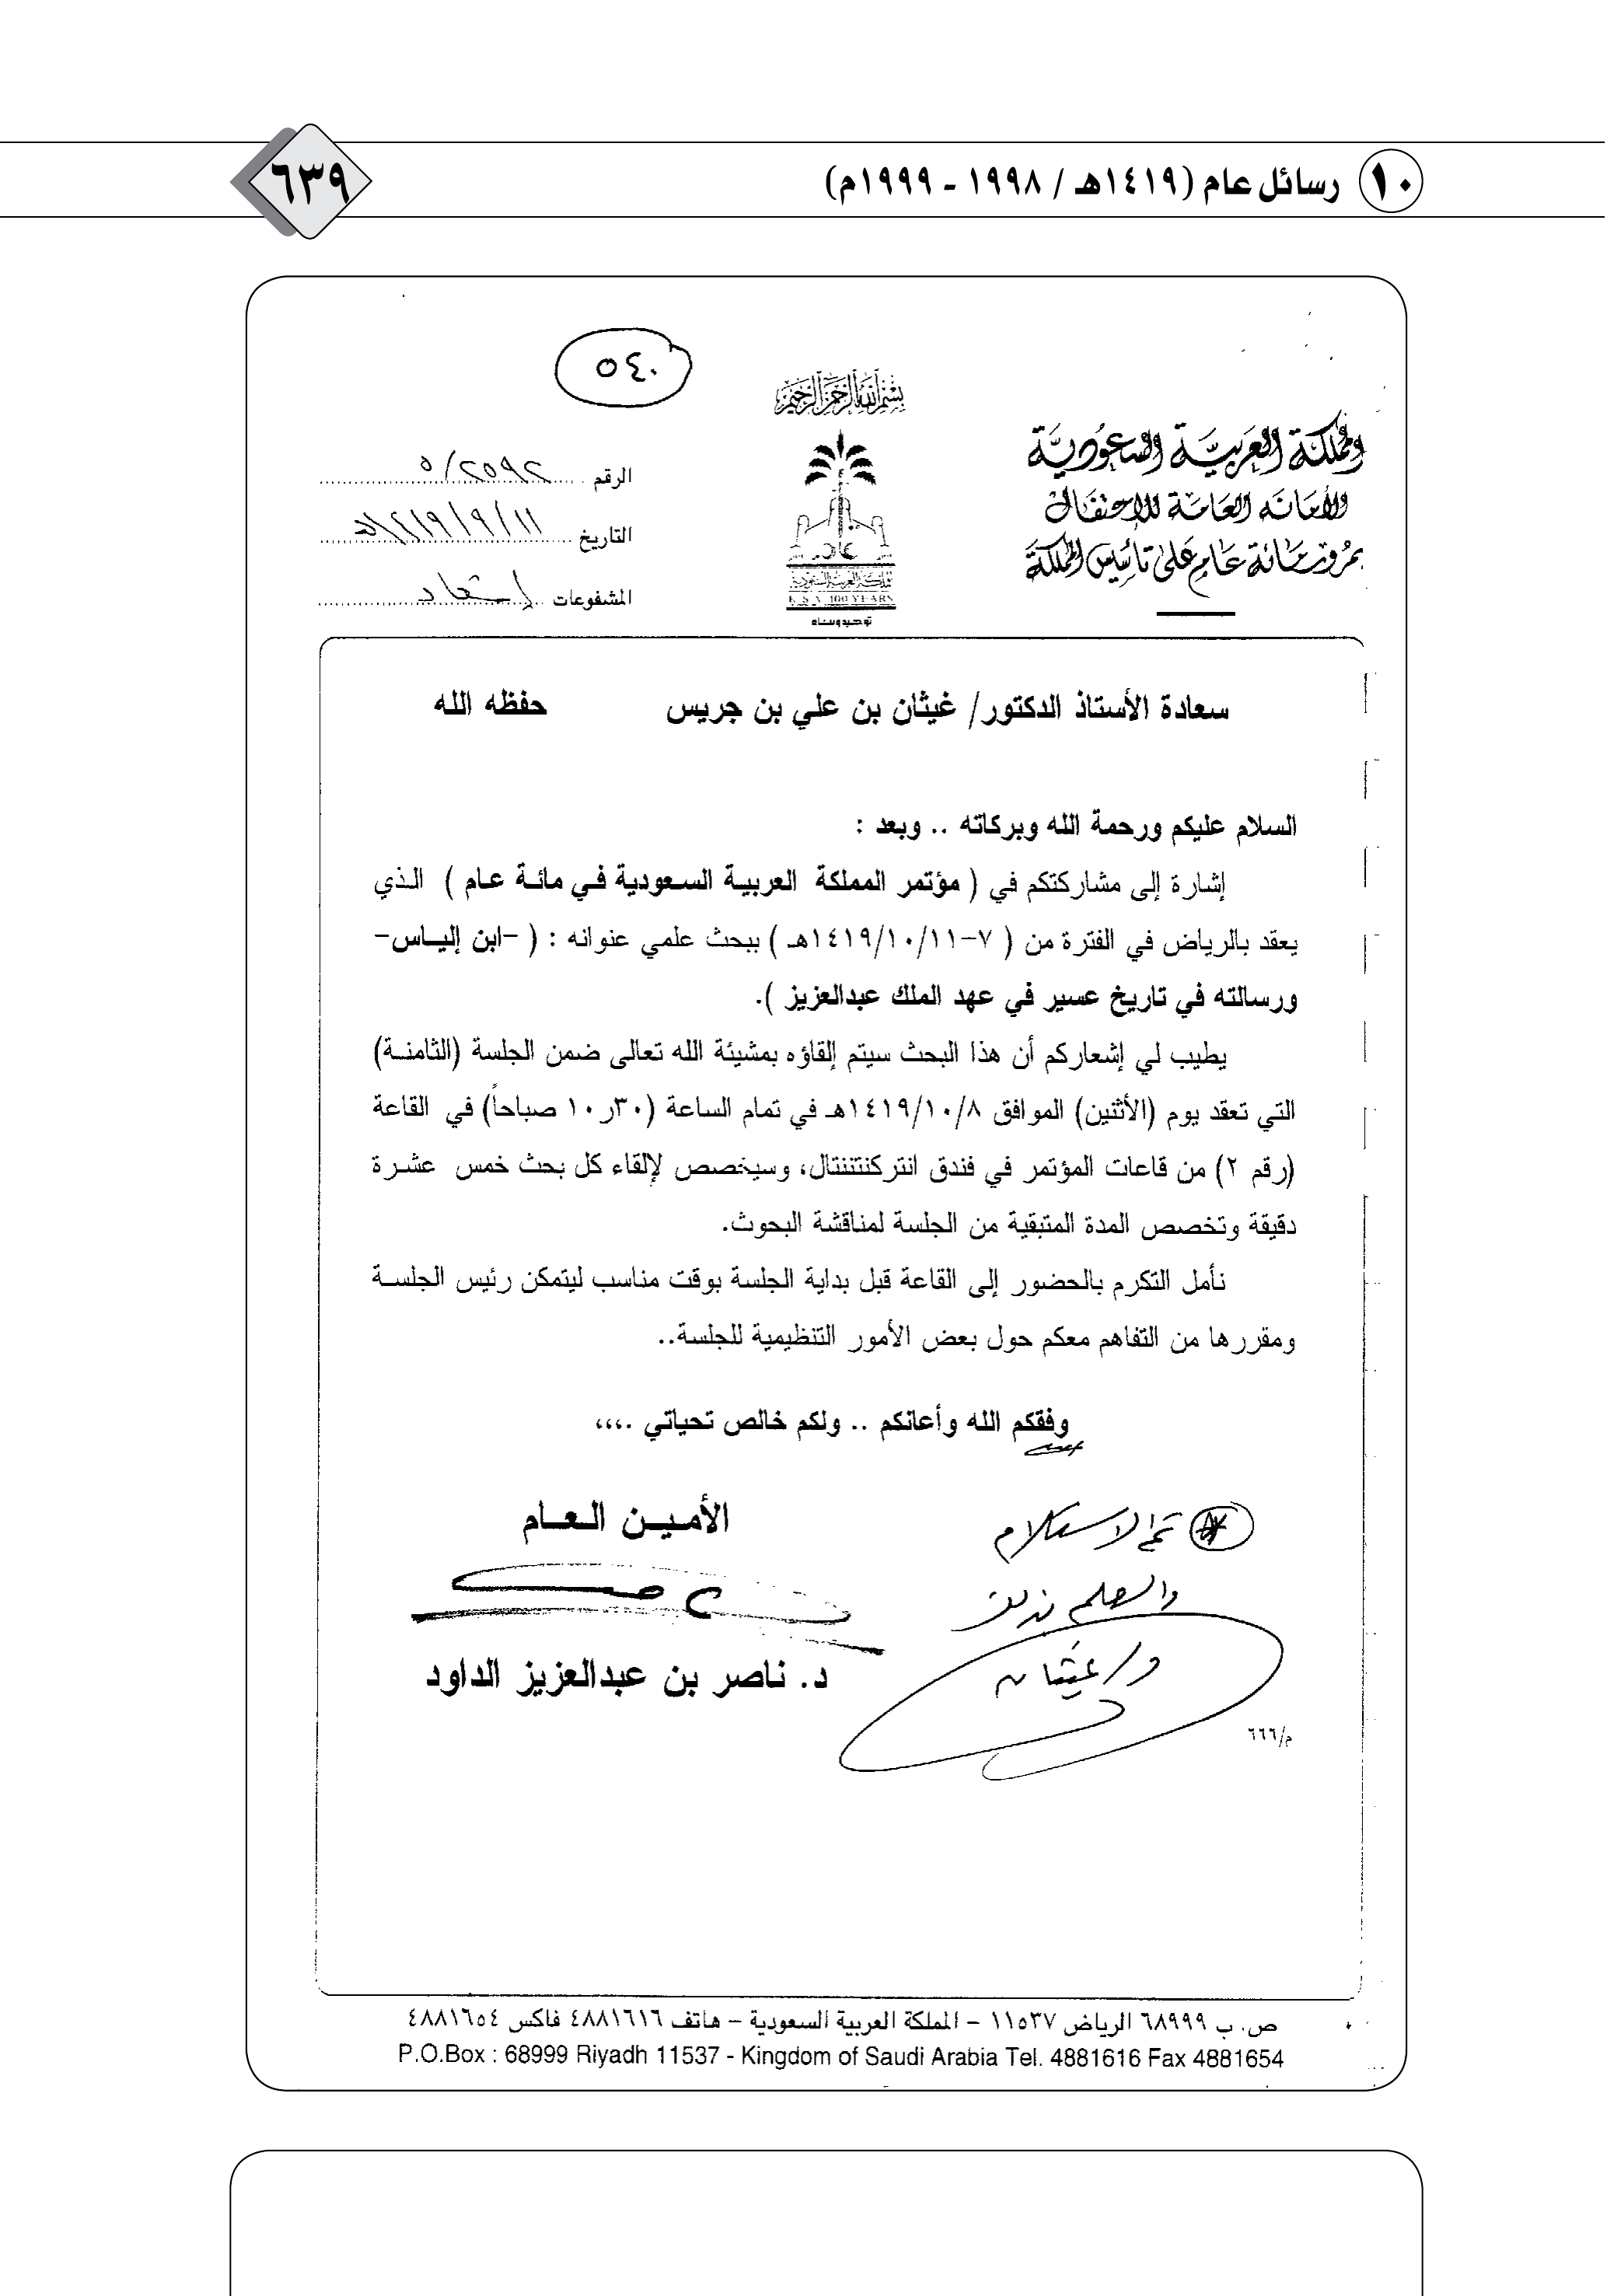 ١٠ رسائل عام (١٤١٩هـ / ١٩٩٨ - ١٩٩٩م)
٦٣٩
٥٤٠
بسم الله الرحمن الرحيم
المملكة العربية السعودية
الأمانة العامة للاحتفال
بمرور مائة عام على تأسيس المملكة
K.S.A 100 YEARS
توحيد وبناء
الرقم ٥/٢٥٩٢
التاريخ ١٤١٩/٩/١١هـ
المشفوعات
سعادة الأستاذ الدكتور/ غيثان بن علي بن جريس حفظه الله
السلام عليكم ورحمة الله وبركاته .. وبعد :
إشارة إلى مشاركتكم في ( مؤتمر المملكة العربية السعودية في مائة عام ) الذي
يعقد بالرياض في الفترة من ( ٧-١٤١٩/١٠/١١هـ ) ببحث علمي عنوانه : ( -ابن إلياس-
ورسالته في تاريخ عسير في عهد الملك عبدالعزيز ).
يطيب لي إشعاركم أن هذا البحث سيتم إلقاؤه بمشيئة الله تعالى ضمن الجلسة (الثامنة)
التي تعقد يوم (الأثنين) الموافق ١٤١٩/١٠/٨هـ في تمام الساعة (٣٠ر١٠ صباحاً) في القاعة
(رقم ٢) من قاعات المؤتمر في فندق انتركنتننتال، وسيخصص لإلقاء كل بحث خمس عشرة
دقيقة وتخصص المدة المتبقية من الجلسة لمناقشة البحوث.
نأمل التكرم بالحضور إلى القاعة قبل بداية الجلسة بوقت مناسب ليتمكن رئيس الجلسة
ومقررها من التفاهم معكم حول بعض الأمور التنظيمية للجلسة..
وفقكم الله وأعانكم .. ولكم خالص تحياتي .،،،
الأمين العام
د. ناصر بن عبدالعزيز الداود
تم الاستلام
والعلم بذلك
د/ غيثان
م/٦٦٦
ص. ب ٦٨٩٩٩ الرياض ١١٥٣٧ - المملكة العربية السعودية - هاتف ٤٨٨١٦١٦ فاكس ٤٨٨١٦٥٤
P.O.Box : 68999 Riyadh 11537 - Kingdom of Saudi Arabia Tel. 4881616 Fax 4881654